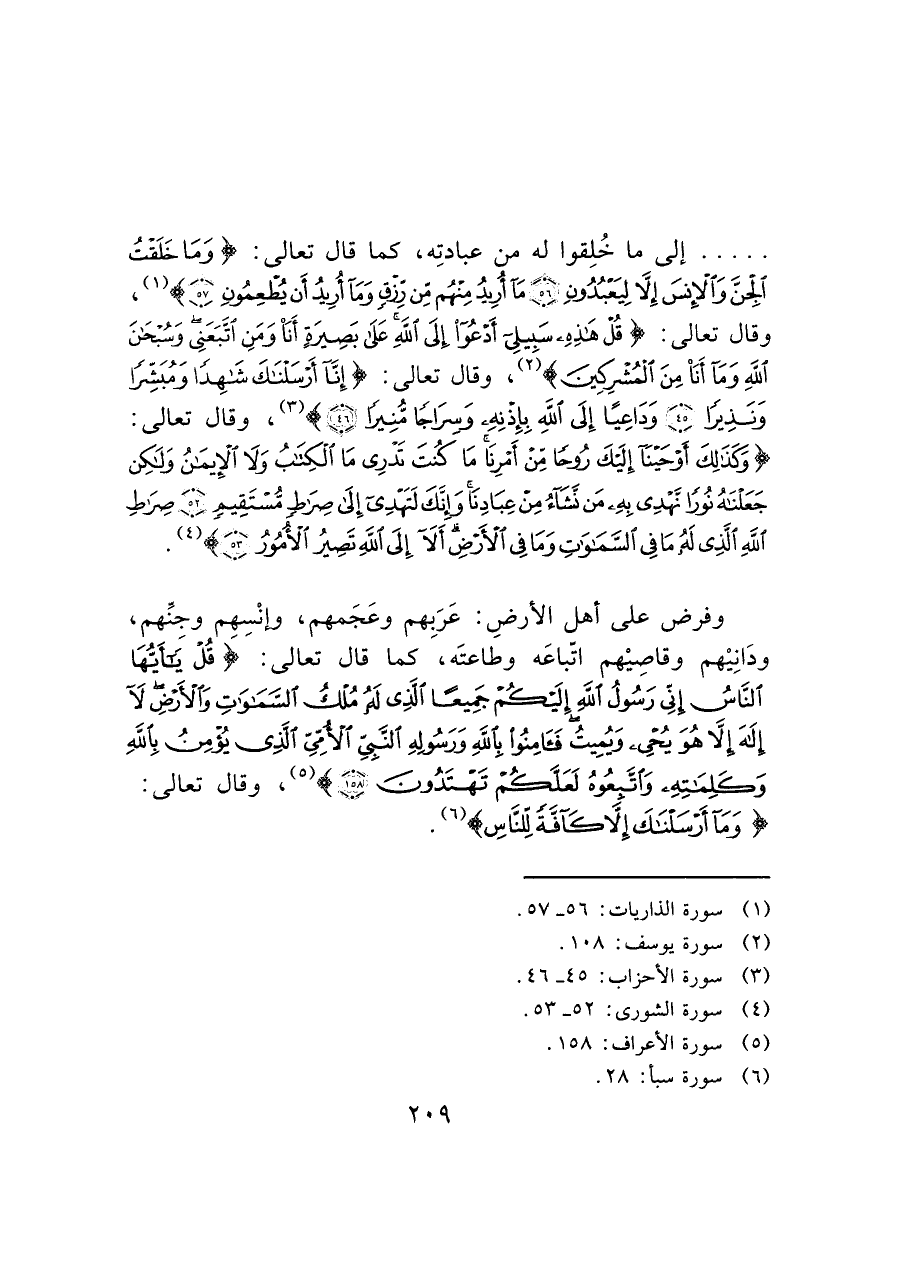 ..... إلى ما خُلِقوا له من عبادتِه، كما قال تعالى: ﴿ وَمَا خَلَقْتُ
ٱلْجِنَّ وَٱلْإِنسَ إِلَّا لِيَعْبُدُونِ ٥٦ مَآ أُرِيدُ مِنْهُم مِّن رِّزْقٍ وَمَآ أُرِيدُ أَن يُطْعِمُونِ ٥٧ ﴾(١)،
وقال تعالى: ﴿ قُلْ هَٰذِهِۦ سَبِيلِىٓ أَدْعُوٓا۟ إِلَى ٱللَّهِ ۚ عَلَىٰ بَصِيرَةٍ أَنَا۠ وَمَنِ ٱتَّبَعَنِى ۖ وَسُبْحَٰنَ
ٱللَّهِ وَمَآ أَنَا۠ مِنَ ٱلْمُشْرِكِينَ ﴾(٢)، وقال تعالى: ﴿ إِنَّآ أَرْسَلْنَٰكَ شَٰهِدًا وَمُبَشِّرًا
وَنَذِيرًا ٤٥ وَدَاعِيًا إِلَى ٱللَّهِ بِإِذْنِهِۦ وَسِرَاجًا مُّنِيرًا ٤٦ ﴾(٣)، وقال تعالى:
﴿ وَكَذَٰلِكَ أَوْحَيْنَآ إِلَيْكَ رُوحًا مِّنْ أَمْرِنَا ۚ مَا كُنتَ تَدْرِى مَا ٱلْكِتَٰبُ وَلَا ٱلْإِيمَٰنُ وَلَٰكِن
جَعَلْنَٰهُ نُورًا نَّهْدِى بِهِۦ مَن نَّشَآءُ مِنْ عِبَادِنَا ۚ وَإِنَّكَ لَتَهْدِىٓ إِلَىٰ صِرَٰطٍ مُّسْتَقِيمٍ ٥٢ صِرَٰطِ
ٱللَّهِ ٱلَّذِى لَهُۥ مَا فِى ٱلسَّمَٰوَٰتِ وَمَا فِى ٱلْأَرْضِ ۗ أَلَآ إِلَى ٱللَّهِ تَصِيرُ ٱلْأُمُورُ ٥٣ ﴾(٤).
وفرض على أهل الأرضِ: عَرَبِهم وعَجَمهم، وإنْسِهِم وجِنِّهم،
ودَانِيْهم وقاصِيْهم اتّباعَه وطاعتَه، كما قال تعالى: ﴿ قُلْ يَٰٓأَيُّهَا
ٱلنَّاسُ إِنِّى رَسُولُ ٱللَّهِ إِلَيْكُمْ جَمِيعًا ٱلَّذِى لَهُۥ مُلْكُ ٱلسَّمَٰوَٰتِ وَٱلْأَرْضِ ۖ لَآ
إِلَٰهَ إِلَّا هُوَ يُحْىِۦ وَيُمِيتُ ۖ فَـَٔامِنُوا۟ بِٱللَّهِ وَرَسُولِهِ ٱلنَّبِىِّ ٱلْأُمِّىِّ ٱلَّذِى يُؤْمِنُ بِٱللَّهِ
وَكَلِمَٰتِهِۦ وَٱتَّبِعُوهُ لَعَلَّكُمْ تَهْتَدُونَ ١٥٨ ﴾(٥)، وقال تعالى:
﴿ وَمَآ أَرْسَلْنَٰكَ إِلَّا كَآفَّةً لِّلنَّاسِ ﴾(٦).
(١) سورة الذاريات: ٥٦ـ ٥٧.
(٢) سورة يوسف: ١٠٨.
(٣) سورة الأحزاب: ٤٥ـ ٤٦.
(٤) سورة الشورى: ٥٢ـ ٥٣.
(٥) سورة الأعراف: ١٥٨.
(٦) سورة سبأ: ٢٨.
٢٠٩